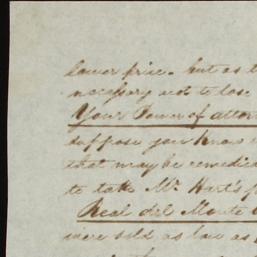 lower price. but as t
necessary not to lose
Your Power of attor
suppose you know
that may be remedie
to take Mr Hart's p
Real del Monte
were sold as low as